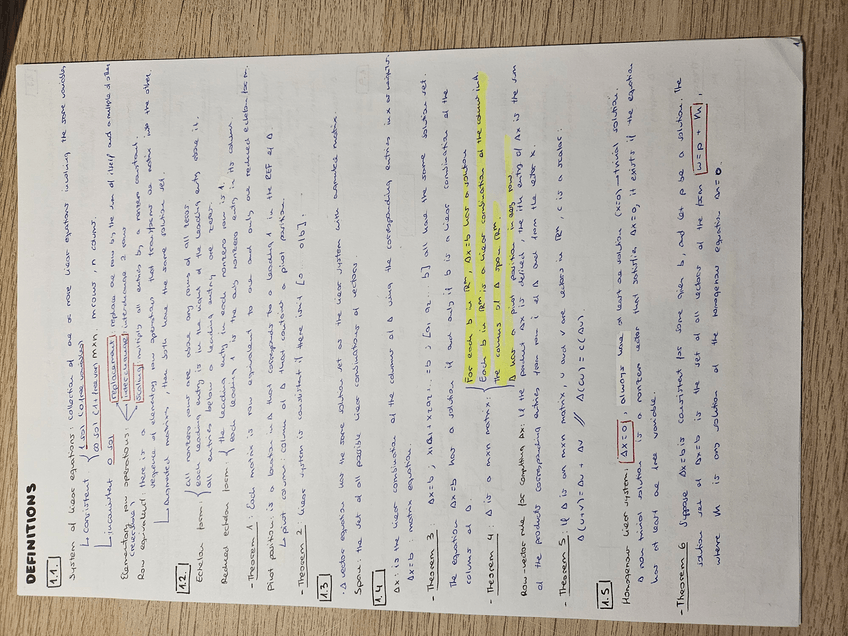 DEFINITIONS
1.1.
System of linear equations: collection of one or more linear equations involving the same variables
↳ consistent { 1 sol (0 free variables)
∞ sol (>1 free var) m×n. m rows, n columns.
↳ inconsistent 0 sol
Elementary row operations: replacement replace one row by the sum of itself and a multiple of other
(reversible) interchange interchange 2 rows
scaling multiply all entries by a nonzero constant.
Row equivalent: there is a sequence of elementary row operations that transforms one matrix into the other.
↳ augmented matrices, then both have the same solution set.
1.2.
Echelon form: { all nonzero rows are above any rows of all zeros.
each leading entry is in the right of the leading entry above it.
all entries below a leading entry are zeros.
Reduced echelon form: { the leading entry in each nonzero row is 1.
each leading 1 is the only nonzero entry in its column.
- Theorem 1: Each matrix is row equivalent to one and only one reduced echelon form.
Pivot position is a location in A that corresponds to a leading 1 in the REF of A.
↳ pivot column column of A that contains a pivot position.
- Theorem 2: linear system is consistent if there isn't [0 ... 0|b].
1.3
· A vector equation has the same solution set as the linear system with augmented matrix.
Span: the set of all possible linear combinations of vectors.
1.4
Ax: is the linear combination of the columns of A using the corresponding entries in x as weights.
Ax=b: matrix equation.
- Theorem 3: Ax=b; x1a1+x2a2+...=b; [a1 a2 ... b] all have the same solution set.
The equation Ax=b has a solution if and only if b is a linear combination of the columns of A.
- Theorem 4: A is a m×n matrix: { For each b in ℝᵐ, Ax=b has a solution
Each b in ℝᵐ is a linear combination of the columns in A.
The columns of A span ℝᵐ
A has a pivot position in every row
Row-vector rule for computing Ax: If the product Ax is defined, the ith entry of Ax is the sum
of the products corresponding entries from row i of A and from the vector x.
- Theorem 5: If A is an m×n matrix, u and v are vectors in ℝⁿ, c is a scalar.
A(u+v)=Au+Av // A(cu)=c(Au).
1.5
Homogeneous linear system: Ax=0, always have at least one solution (x=0) → trivial solution.
A non trivial solution is a nonzero vector that satisfies Ax=0, it exists if the equation
has at least one free variable.
- Theorem 6 Suppose Ax=b is consistent for some given b, and let p be a solution. The
solution set of Ax=b is the set of all vectors of the form w=p+Vh,
where Vh is any solution of the homogeneous equation Ax=0.
1